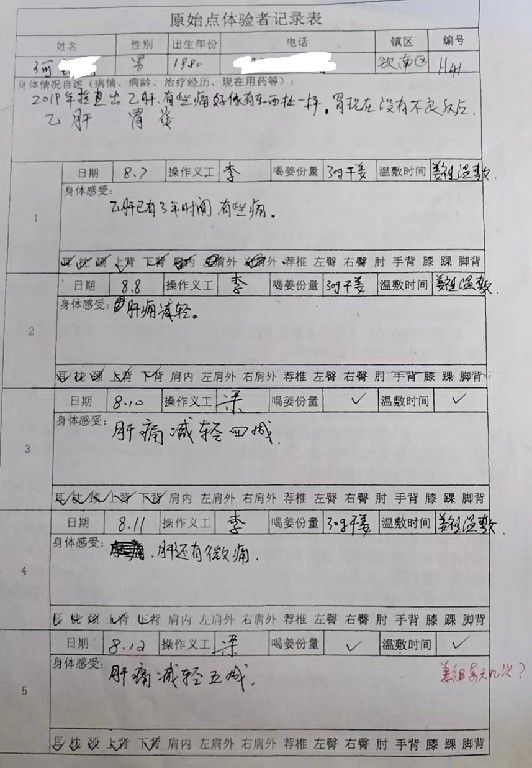 原始点体验者记录表
姓名 性别 出生年份 电话 镇区 编号
何 男 1980 钦南区 H41
身体情况自述(病情、病龄、治疗经历、现在用药等):
2018年检查出乙肝,有些痛好像有东西扯一样,胃现在没有不良反应
乙肝 胃
日期 8.7 操作义工 李 喝姜份量 30g干姜 温敷时间 姜祖温敷
身体感受:
1
乙肝已有3年时间,有些痛。
耳 枕 颈 上背 下背 肩内 左肩外 右肩外 荐椎 左臀 右臀 肘 手背 膝 踝 脚背
日期 8.8 操作义工 李 喝姜份量 30g干姜 温敷时间 姜祖温敷
身体感受: 肝痛减轻。
2
耳 枕 颈 上背 下背 肩内 左肩外 右肩外 荐椎 左臀 右臀 肘 手背 膝 踝 脚背
日期 8.10 操作义工 梁 喝姜份量 ✓ 温敷时间 ✓
身体感受:
肝痛减轻四成.
3
耳 枕 颈 上背 下背 肩内 左肩外 右肩外 荐椎 左臀 右臀 肘 手背 膝 踝 脚背
日期 8.11 操作义工 李 喝姜份量 30g干姜 温敷时间 姜祖温敷
身体感受: 肝还有微痛.
4
耳 枕 颈 上背 下背 肩内 左肩外 右肩外 荐椎 左臀 右臀 肘 手背 膝 踝 脚背
日期 8.12 操作义工 梁 喝姜份量 ✓ 温敷时间 ✓
身体感受:
肝痛减轻五成. 每天几次?
5
耳 枕 颈 上背 下背 肩内 左肩外 右肩外 荐椎 左臀 右臀 肘 手背 膝 踝 脚背